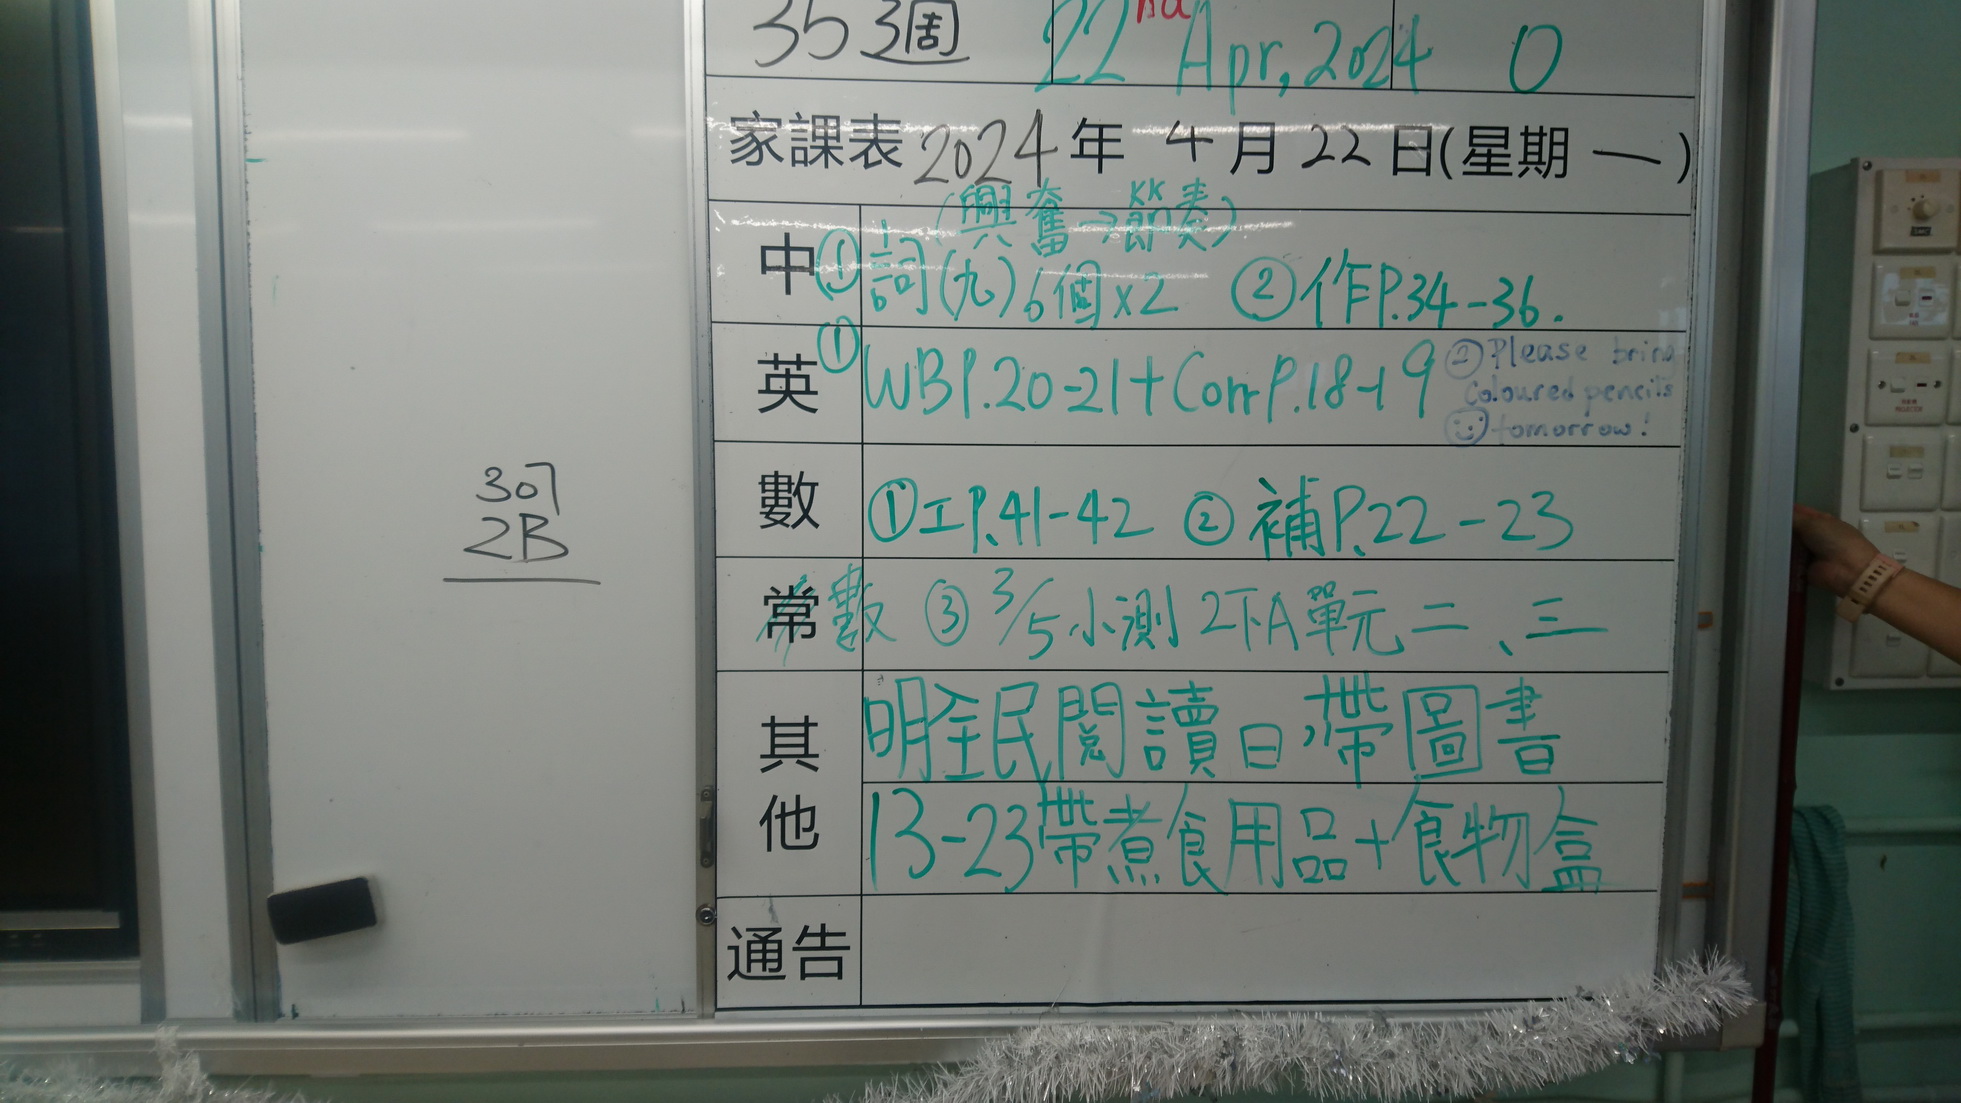 307
2B
35 3週 22nd Apr, 2024 0
家課表 2024年 4月 22日(星期一)
(興奮→節奏)
中 ① 詞(九)6個x2 ②作P.34-36.
英 ① WB P.20-21+Corr P.18-19 ② Please bring
coloured pencils
tomorrow!
數 ①工P.41-42 ② 補P.22-23
常 數 ③ 3/5小測 2下A單元二、三
其他 明全民閱讀日,帶圖書
13-23帶煮食用品+食物盒
通告